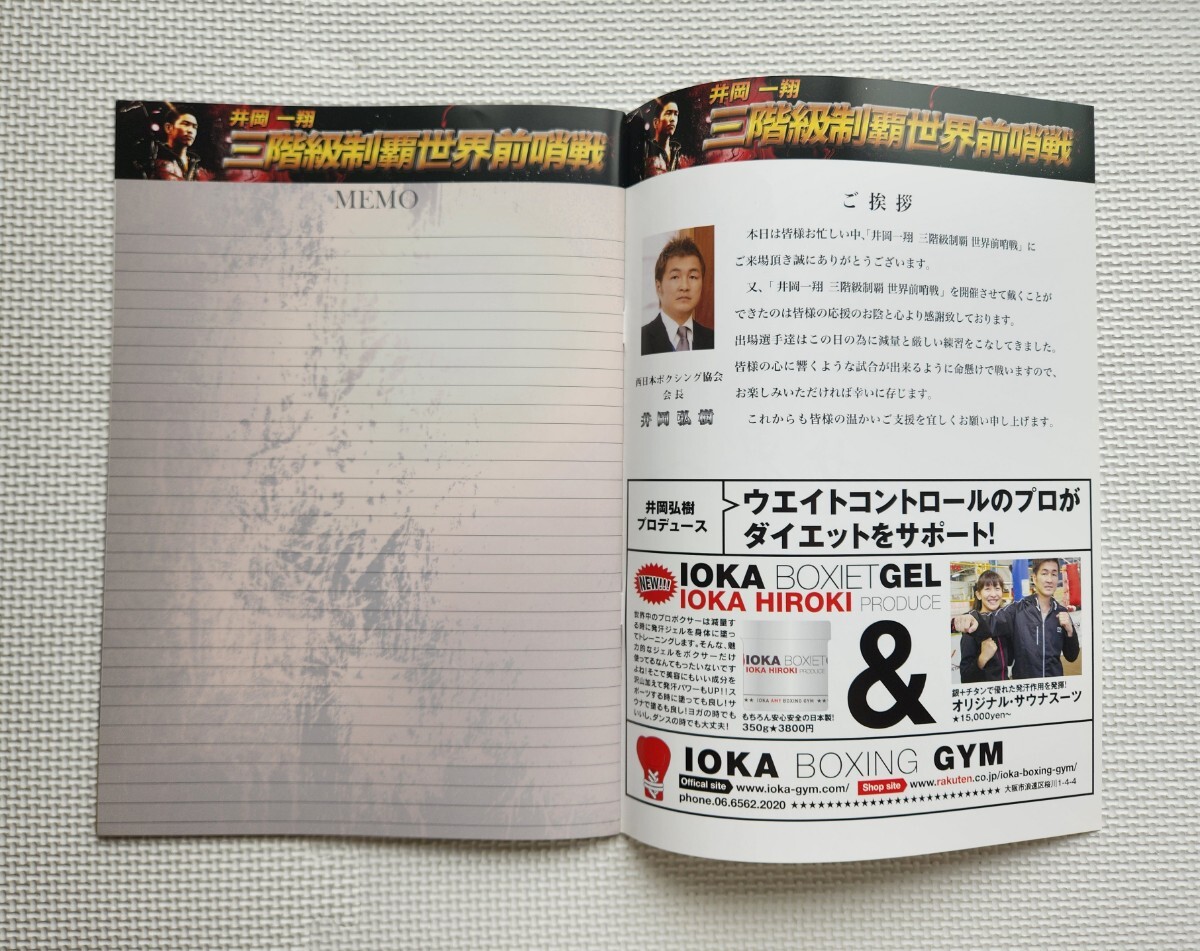 井岡 一翔
三階級制覇世界前哨戦
MEMO
井岡 一翔
三階級制覇世界前哨戦
ご挨拶
本日は皆様お忙しい中、「井岡一翔 三階級制覇 世界前哨戦」に
ご来場頂き誠にありがとうございます。
又、「井岡一翔 三階級制覇 世界前哨戦」を開催させて戴くことが
できたのは皆様の応援のお陰と心より感謝致しております。
出場選手達はこの日の為に減量と厳しい練習をこなしてきました。
皆様の心に響くような試合が出来るように命懸けで戦いますので、
お楽しみいただければ幸いに存じます。
これからも皆様の温かいご支援を宜しくお願い申し上げます。
西日本ボクシング協会
会長
井岡弘樹
井岡弘樹
プロデュース
ウエイトコントロールのプロが
ダイエットをサポート!
NEW!!!
IOKA BOXIETGEL
IOKA HIROKI PRODUCE
世界中のプロボクサーは減量す
る時に発汗ジェルを身体に塗っ
てトレーニングします。そんな、魅
力的なジェルをボクサーだけ
使ってるなんてもったいないです
よね!そこで美容にもいい成分を
沢山加えて発汗パワーもUP!!ス
ポーツする時に塗っても良し!サ
ウナで塗るも良し!ヨガの時でも
いいし、ダンスの時でも大丈夫!
IOKA BOXIETG
IOKA HIROKI PRODUCE
★★ IOKA BOXING GYM ★★
もちろん安心安全の日本製!
350g★3800円
&
銀+チタンで優れた発汗作用を発揮!
オリジナル・サウナスーツ
★15,000yen〜
IOKA BOXING GYM
Offical site www.ioka-gym.com/ Shop site www.rakuten.co.jp/ioka-boxing-gym/
phone.06.6562.2020 ★★★★★★★★★★★★★★★★★★★★★★★★ 大阪市浪速区桜川1-4-4